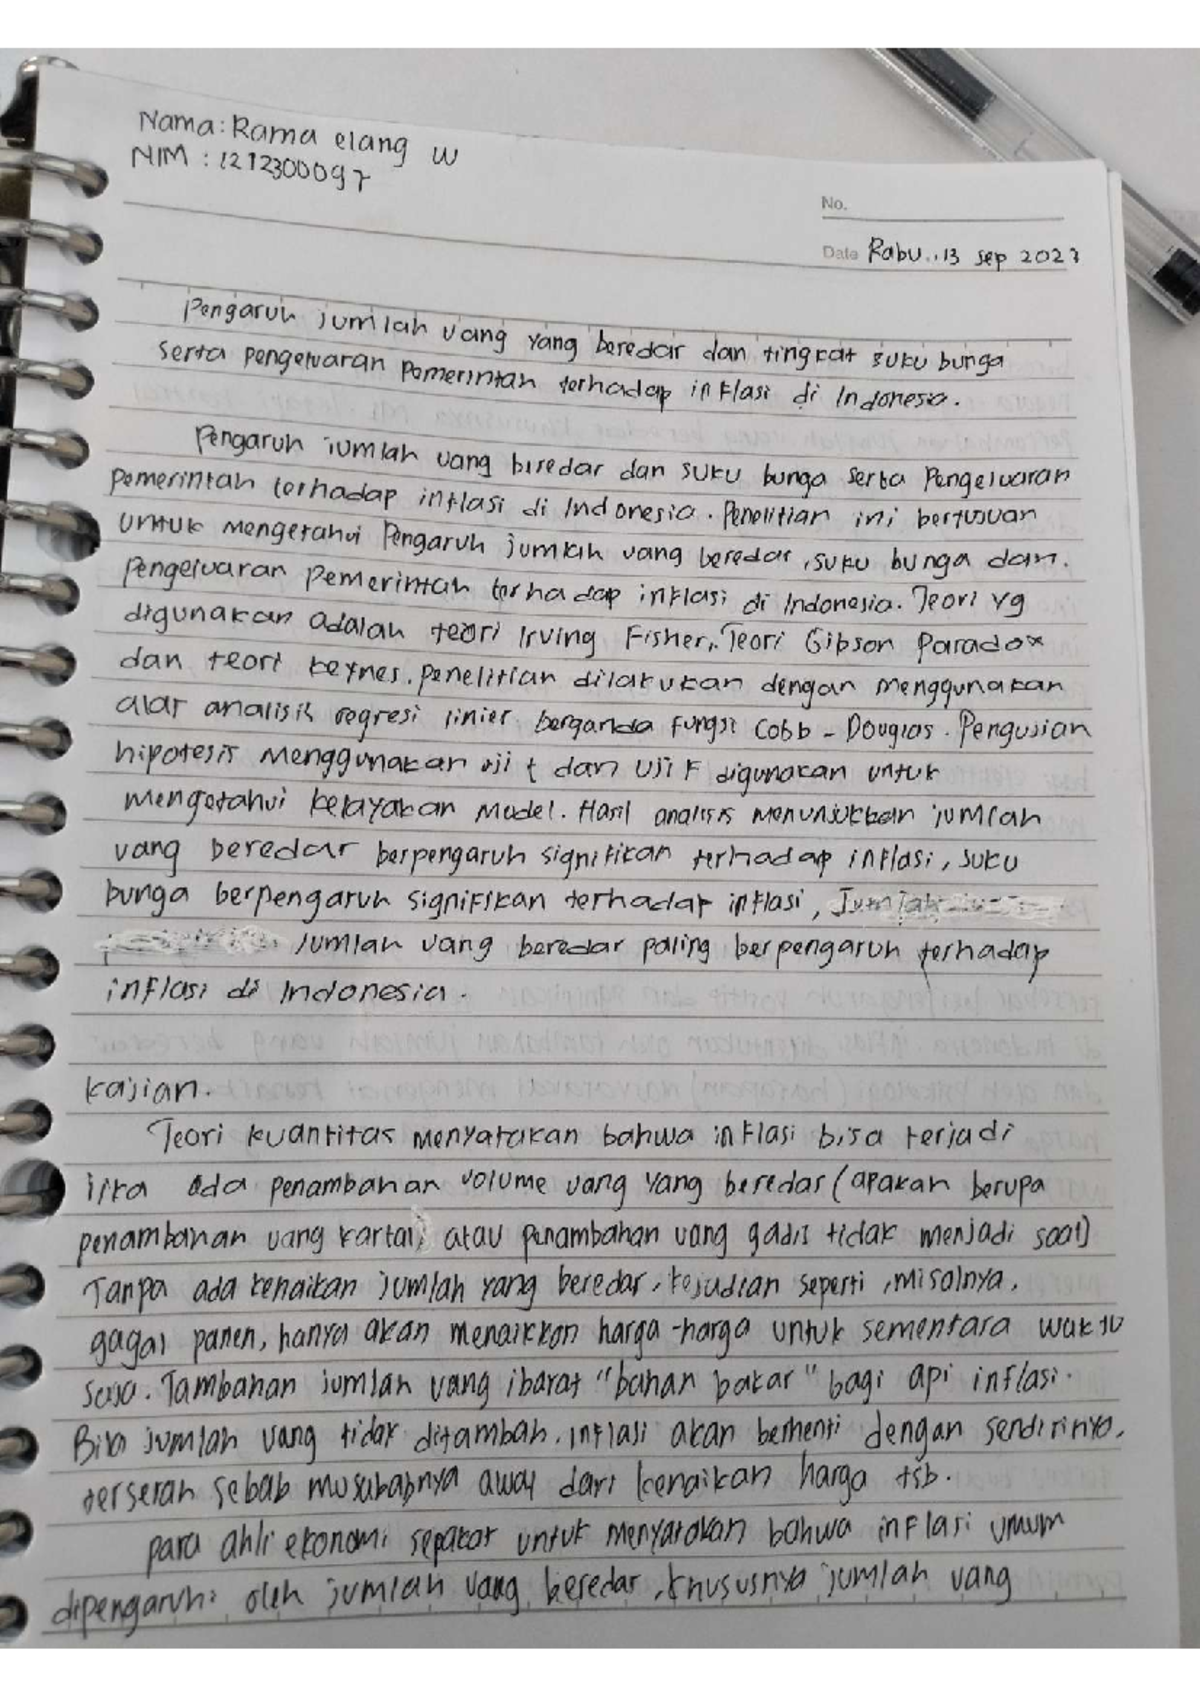 Nama: Rama elang W
NIM : 1212300097
No.
Date Rabu, 13 sep 2023
Pengaruh jumlah uang yang beredar dan tingkat suku bunga
serta pengeluaran pemerintah terhadap inflasi di Indonesia.
Pengaruh jumlah uang beredar dan suku bunga serta Pengeluaran
pemerintah terhadap inflasi di Indonesia. Penelitian ini bertujuan
untuk mengetahui Pengaruh jumlah uang beredar, suku bunga dan.
Pengeluaran pemerintah terhadap inflasi di Indonesia. Teori yg
digunakan adalah teori Irving Fisher, Teori Gibson Paradox
dan teori keynes. penelitian dilakukan dengan menggunakan
alat analisis regresi linier berganda fungsi Cobb - Douglas. Pengujian
hipotesis menggunakan uji t dan uji F digunakan untuk
mengetahui kelayakan model. Hasil analisis menunjukkan jumlah
uang beredar berpengaruh signifikan terhadap inflasi, suku
bunga berpengaruh signifikan terhadap inflasi,
Jumlah uang beredar paling berpengaruh terhadap
inflasi di Indonesia.
kajian.
Teori kuantitas menyatakan bahwa inflasi bisa terjadi
jika ada penambahan volume uang yang beredar (apakah berupa
penambahan uang kartal) atau penambahan uang gadis tidak menjadi soal)
Tanpa ada kenaikan jumlah yang beredar, kejudian seperti, misalnya,
gagal panen, hanya akan menaikkan harga-harga untuk sementara waktu
saja. Tambahan jumlah uang ibarat "bahan bakar" bagi api inflasi.
Bila jumlah uang tidak ditambah, inflasi akan berhenti dengan sendirinya,
terserah sebab musababnya away dari kenaikan harga tsb.
para ahli ekonomi sepakat untuk menyatakan bahwa inflasi umum
dipengaruhi oleh jumlah uang beredar, khususnya jumlah uang